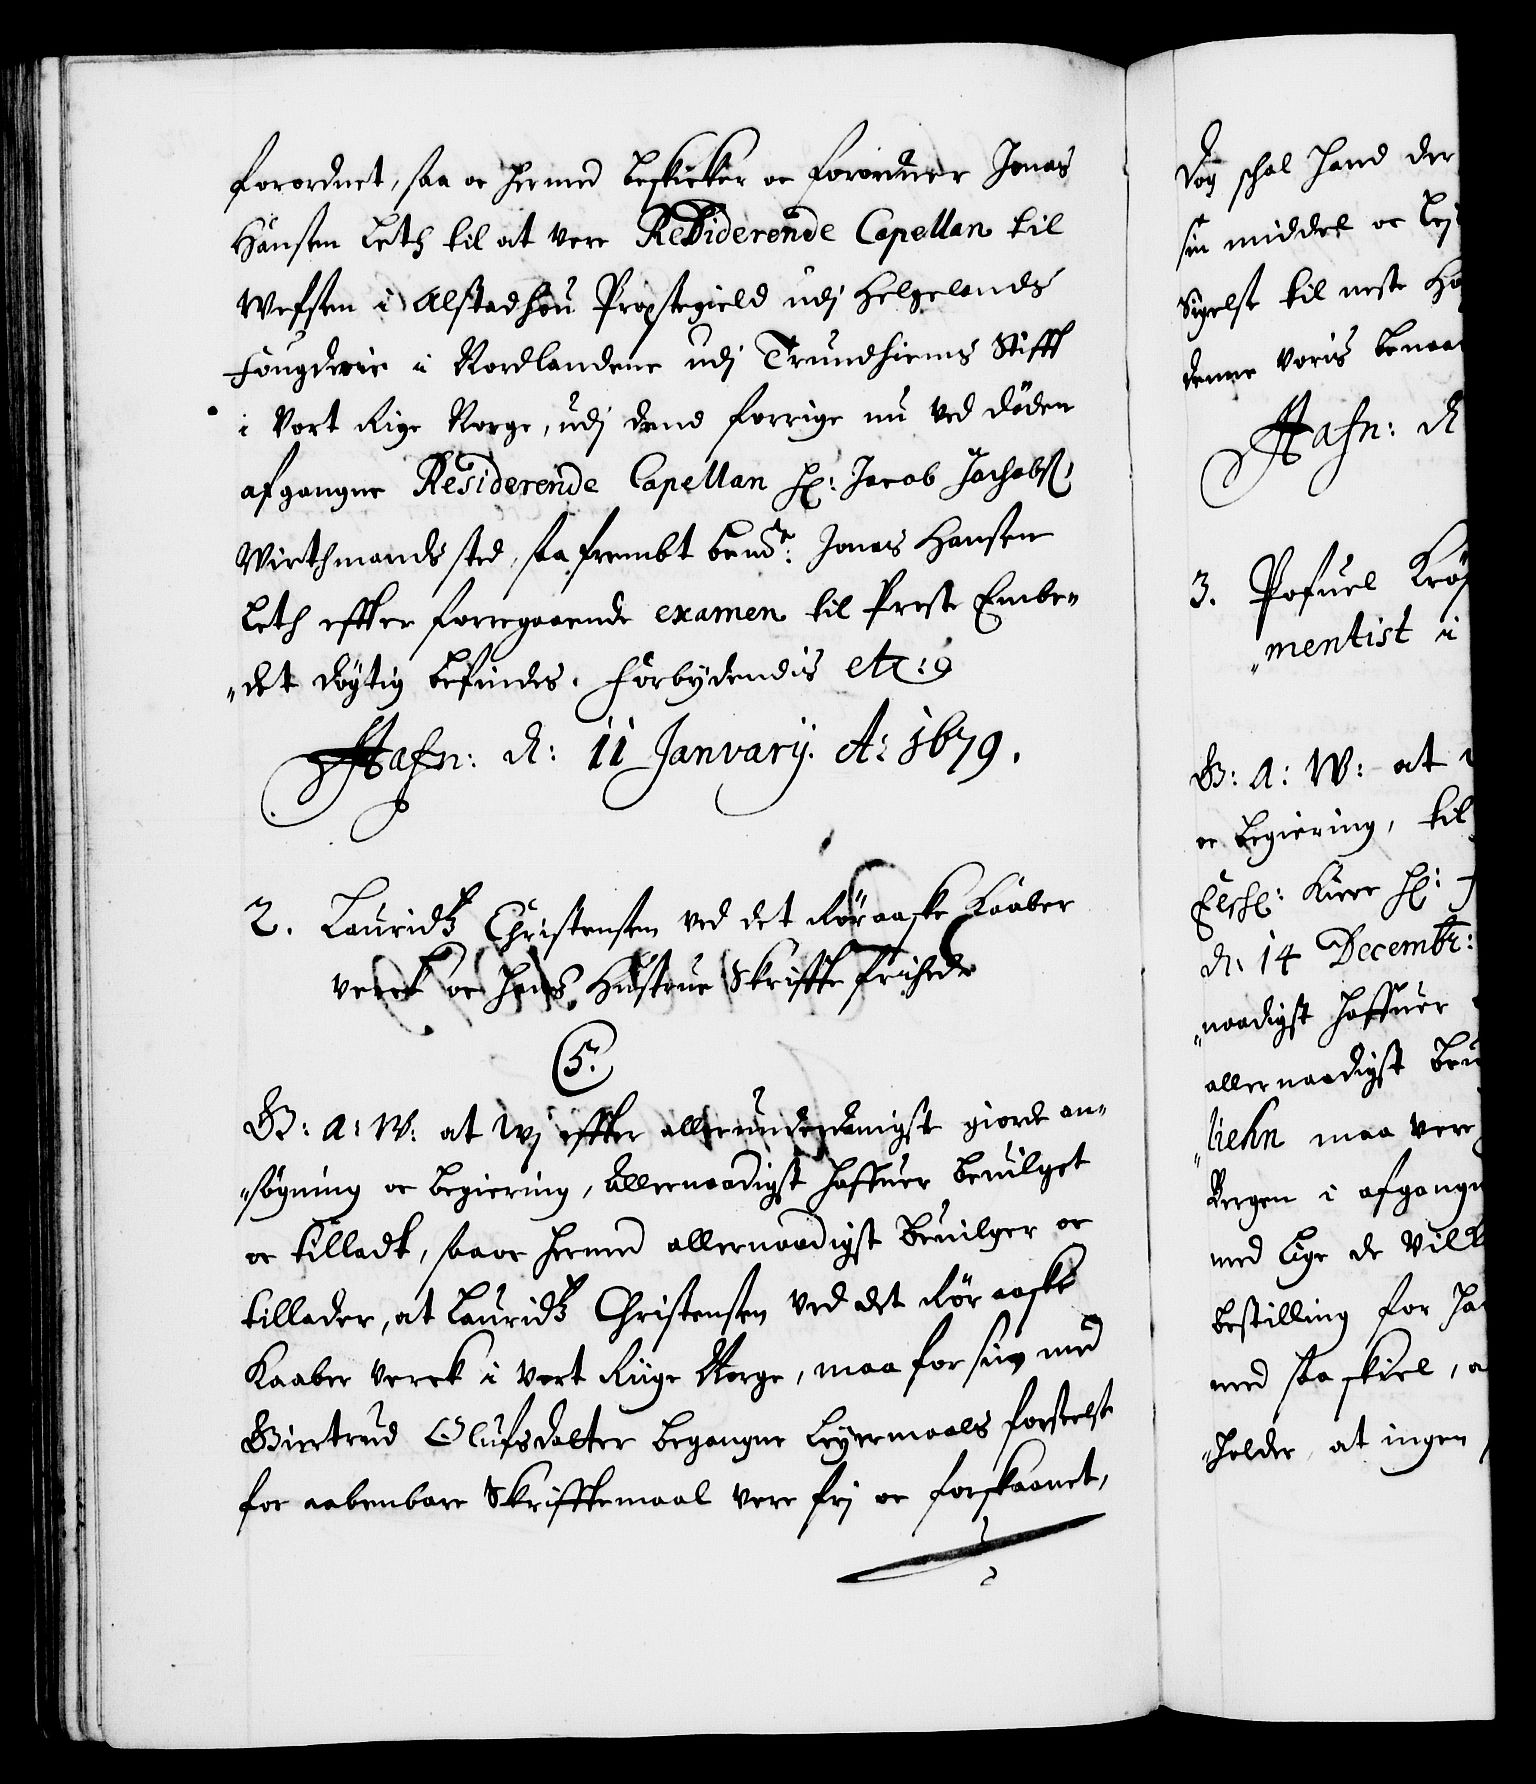 forordnet, saa oc hermed beskicker oc forordner Jonas
Hansen Leth til at vere Residerende Capellan til
Wefsen i Alstadhou Prestegield udj Helgelands
Fougderie i Nordlandene udj Trundhiems Stifft
i Vort Rige Norge, udj dend forrige nu ved döden
afgangne Residerende Capellan Hr: Jacob Jachobs:
Wirthmands sted, saa frembt bemte: Jonas Hansen
Leth effter forregaaende examen til Preste Embe„
„det döytig befindes. Forbydendis etc:
Hafn: d: 11 Janvarij. Ao: 1679.
2. Lauridtz Christensen ved det Röraaske Kaaber
verck oc hans Hustrue Skriffte frihede
(5.)
G: A: W: at Wj effter allerunderdanigst giorde an„
„søgning oc begiering, allernaadigst haffuer beuilget
oc tilladt, saa oc hermed allernaadigst beuilger oc
tillader, at Lauridtz Christensen ved det Röraaske
Kaaber verck i vort Riige Norge, maa for sin med
Giertrud Olufsdatter begangne Leyermaals forseelse
for aabenbare Skrifftemaal vere frj oc forskaanet,
Dog schal hand der
sin middel oc lej
Sigelse til neste Ho
denne voris benaa
Hafn: d
3. Pofuel Krøy
„mentist i
G: A: W: at
oc begiering, til
Elsch: Kiere Hr:
d: 14 Decembr:
„naadigst haffuer
allernaadigst beu
„liehn maa vere
Bergen i afgangn
med lige de Vilk
bestilling for ha
med saa skiel, a
„holder, at ingen